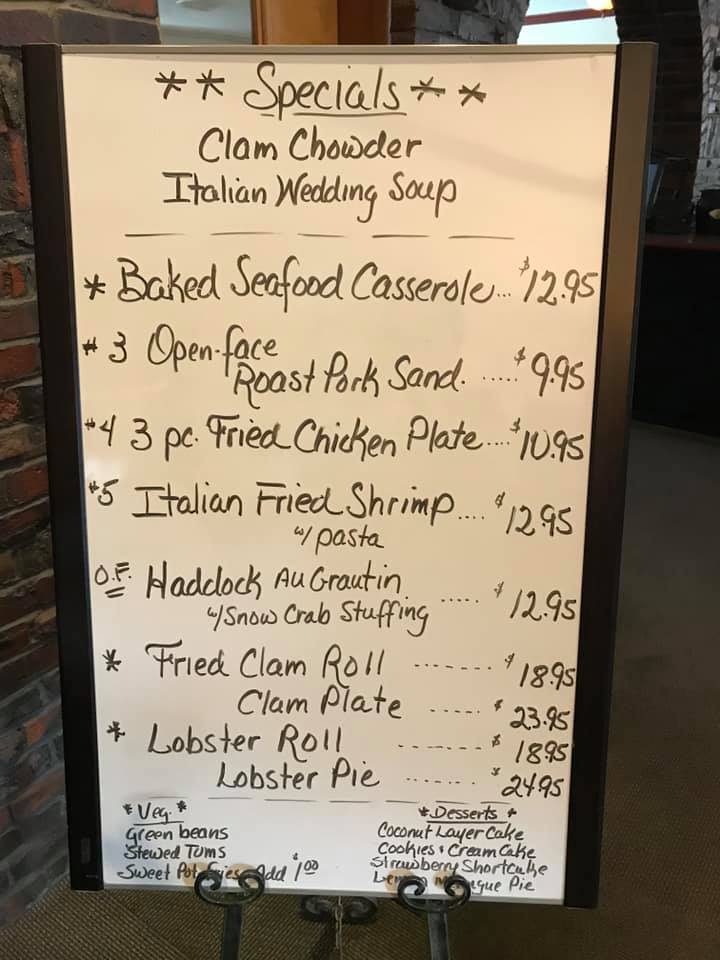 ** Specials **
Clam Chowder
Italian Wedding Soup
* Baked Seafood Casserole... $12.95
#3 Open-face
Roast Pork Sand. ..... $9.95
#4 3 pc. Fried Chicken Plate.... $10.95
#5 Italian Fried Shrimp.... $12.95
w/ pasta
O.F. Haddock Au Grautin ..... $12.95
w/ Snow Crab Stuffing
* Fried Clam Roll ------- $18.95
Clam Plate ----- $23.95
* Lobster Roll ------- $18.95
Lobster Pie ------- $24.95
*Veg.*
Green beans
Stewed Toms
Sweet Add $1.00
*Desserts*
Coconut Layer Cake
Cookies & Cream Cake
Strawberry Shortcake
Pie